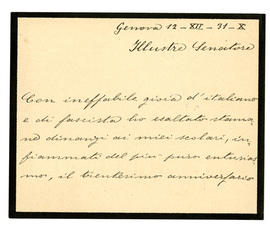 Genova 12 - XII - 31 - X
Illustre Senatore
Con ineffabile gioia d'italiano
e di fascista ho esaltato stama
ne dinanzi ai miei scolari, in,
fiammati del più puro entusias
mo, il trentesimo anniversario